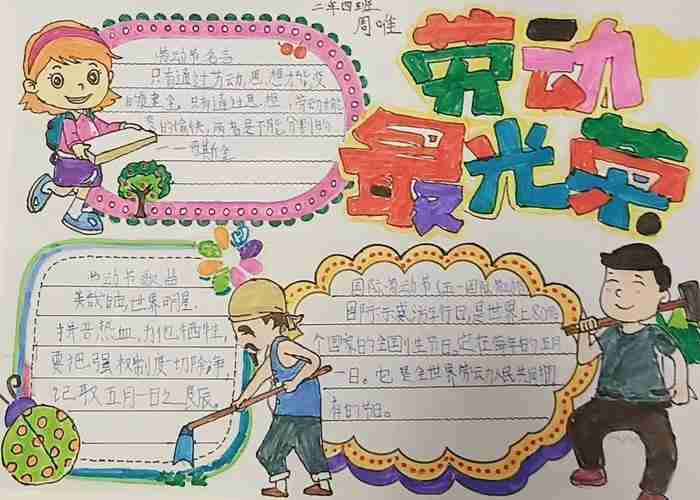 二年四班
周唯
劳动
最光荣
劳动节名言
只有通过劳动,思想才能变
健康,只有通过思想,劳动才能
的愉快,两者是不能分割的
——罗斯金
劳动节歌曲
美哉自由,世界明星,
拼吾热血,为他牺牲,
要把强权制度一切除净
记取五月一日之良辰。
国际劳动节(五一国际
国际示威游行日,是世界上80多
个国家的全国性节日。它在每年的五月
一日。也是全世界劳动人民共同拥
有的节日。